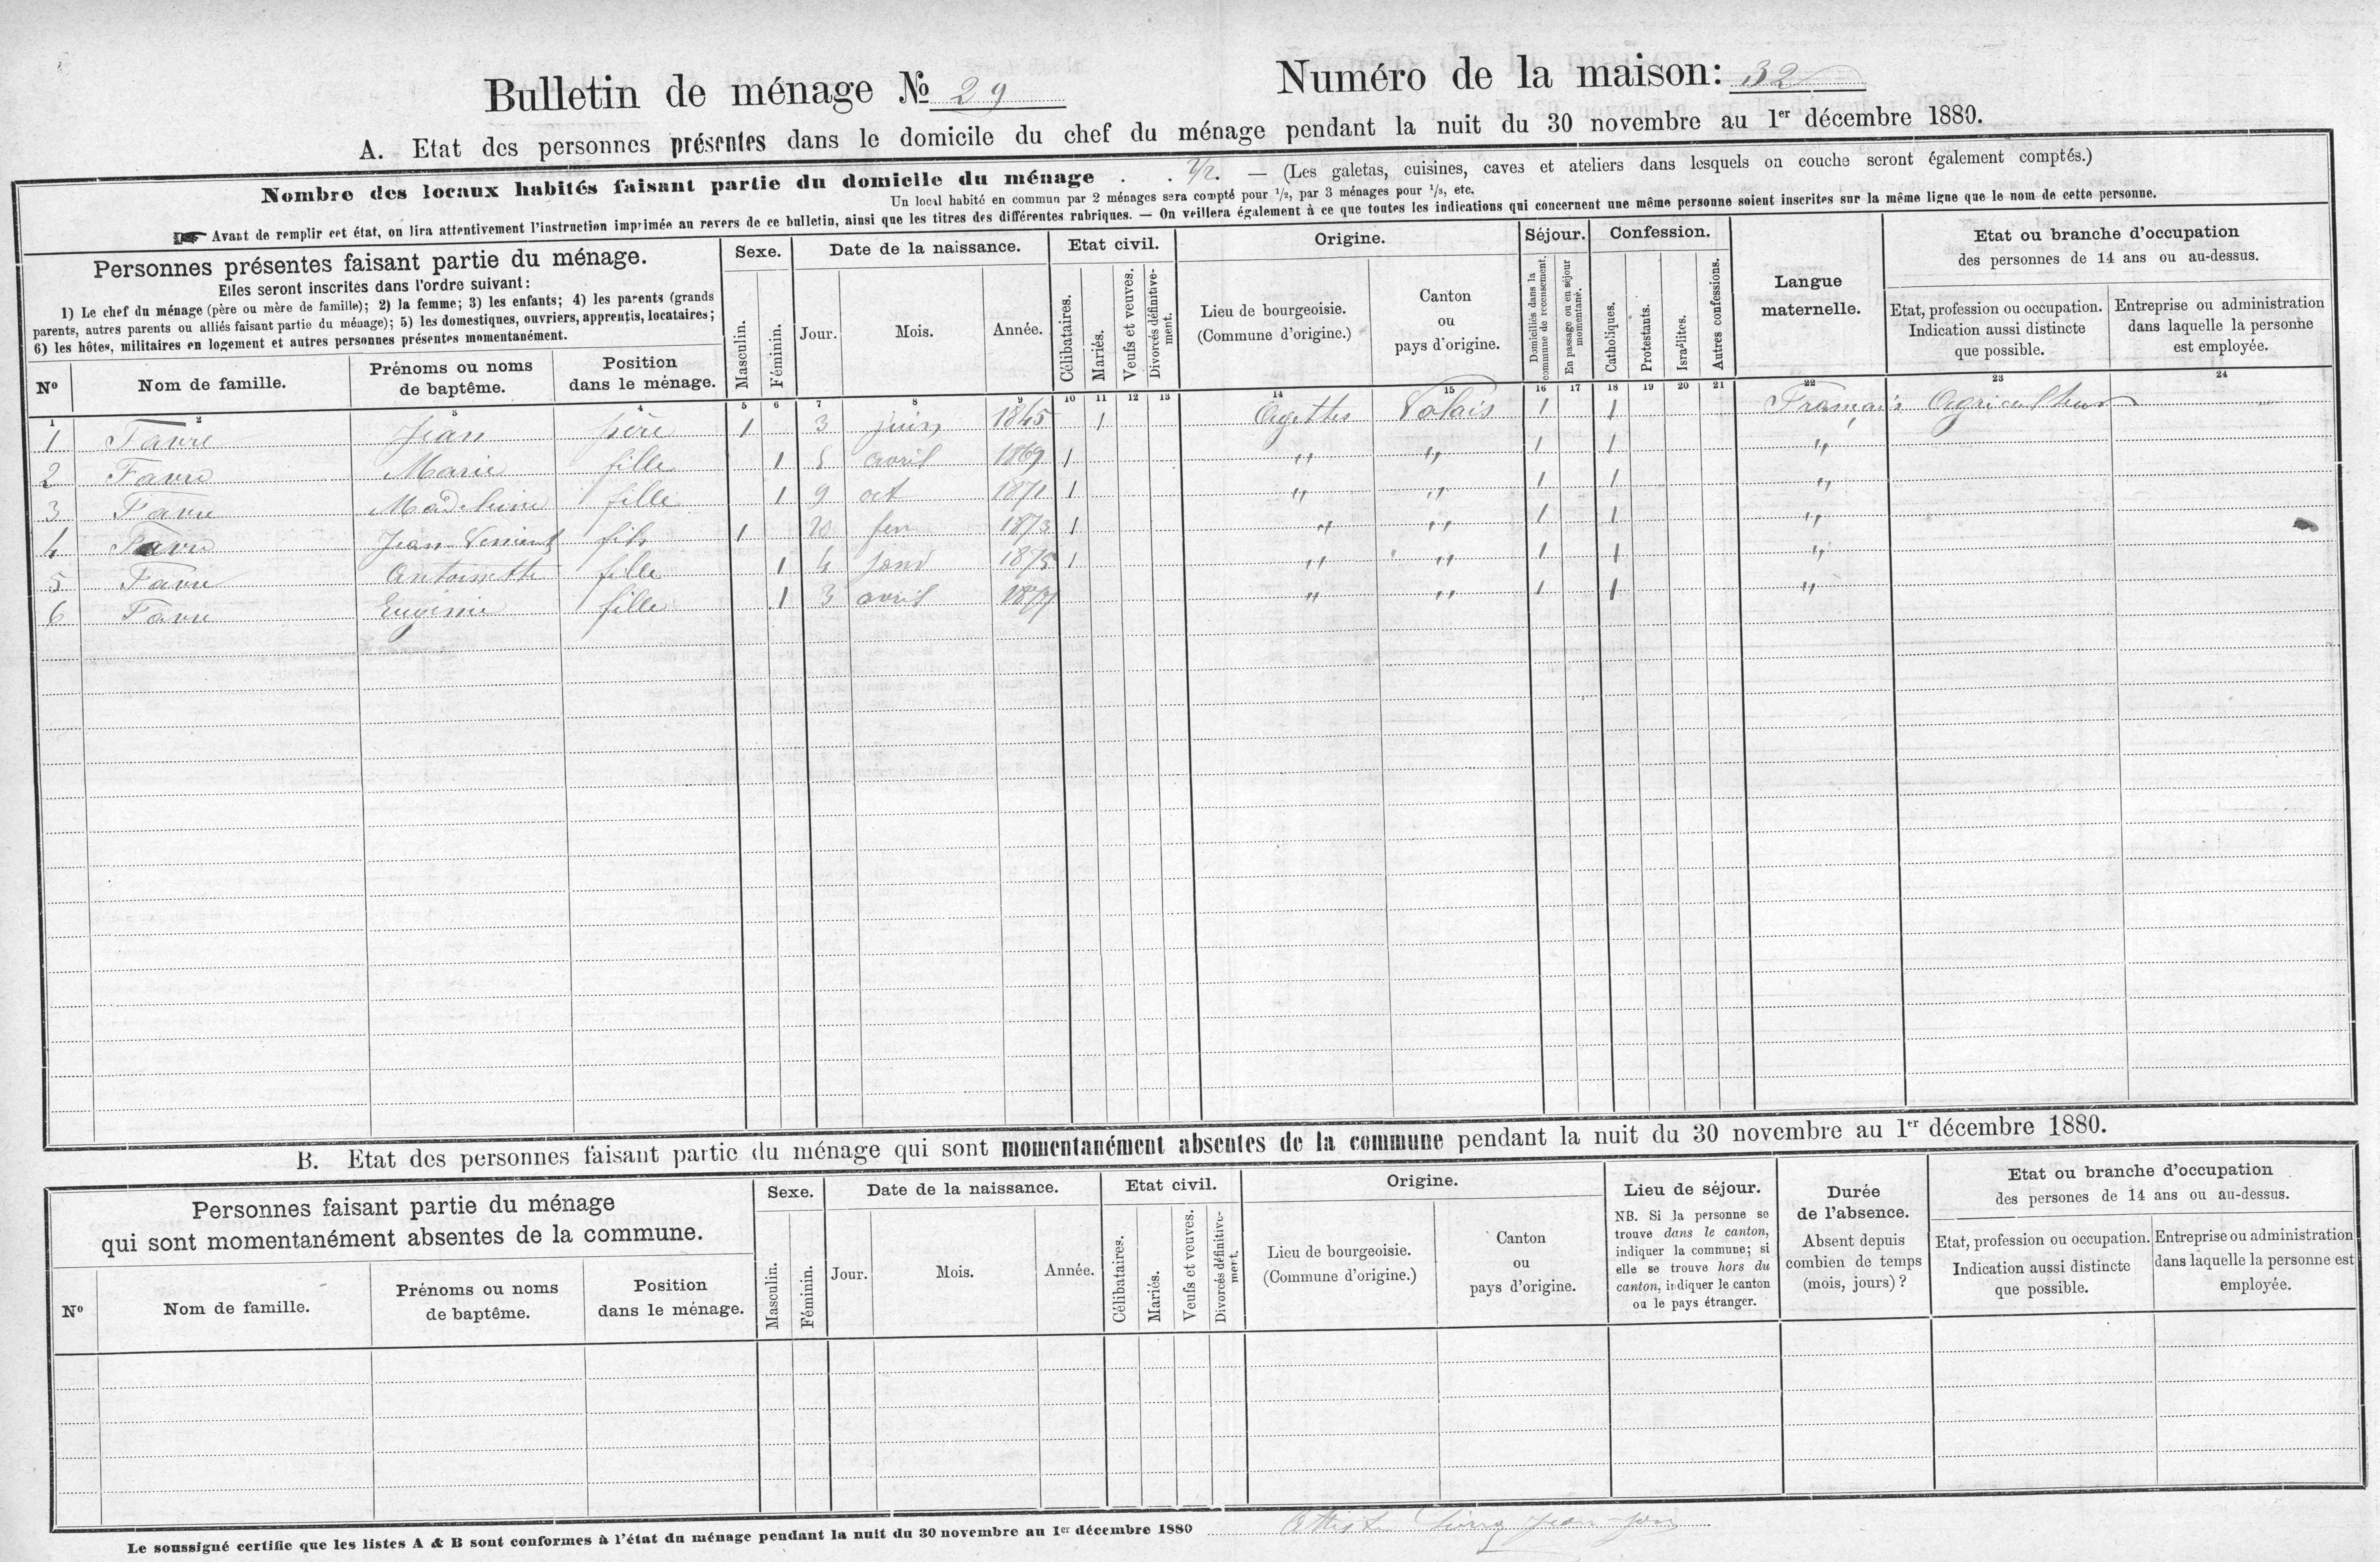 Bulletin de ménage № 29
Numéro de la maison: 32
A. Etat des personnes présentes dans le domicile du chef du ménage pendant la nuit du 30 novembre au 1er décembre 1880.
Nombre des locaux habités faisant partie du domicile du ménage . . 1/2. — (Les galetas, cuisines, caves et ateliers dans lesquels on couche seront également comptés.)
Un local habité en commun par 2 ménages sera compté pour 1/2, par 3 ménages pour 1/3, etc.
☞ Avant de remplir cet état, on lira attentivement l'instruction imprimée au revers de ce bulletin, ainsi que les titres des différentes rubriques. — On veillera également à ce que toutes les indications qui concernent une même personne soient inscrites sur la même ligne que le nom de cette personne.
Personnes présentes faisant partie du ménage.
Elles seront inscrites dans l'ordre suivant:
1) Le chef du ménage (père ou mère de famille); 2) la femme; 3) les enfants; 4) les parents (grands
parents, autres parents ou alliés faisant partie du ménage); 5) les domestiques, ouvriers, apprentis, locataires;
6) les hôtes, militaires en logement et autres personnes présentes momentanément.
Nº
Nom de famille.
Prénoms ou noms
de baptême.
Position
dans le ménage.
Sexe.
Masculin.
Féminin.
Date de la naissance.
Jour.
Mois.
Année.
Etat civil.
Célibataires.
Mariés.
Veufs et veuves.
Divorcés définitive-
ment.
Origine.
Lieu de bourgeoisie.
(Commune d'origine.)
Canton
ou
pays d'origine.
Séjour.
Domiciliés dans la
commune de recensement.
En passage ou en séjour
momentané.
Confession.
Catholiques.
Protestants.
Israélites.
Autres confessions.
Langue
maternelle.
Etat ou branche d'occupation
des personnes de 14 ans ou au-dessus.
Etat, profession ou occupation.
Indication aussi distincte
que possible.
Entreprise ou administration
dans laquelle la personne
est employée.
1 2 3 4 5 6 7 8 9 10 11 12 13 14 15 16 17 18 19 20 21 22 23 24
1 Favre Jean père 1 3 juin 1845 1 Agettes Valais 1 1 Français Agriculteur
2 Favre Marie fille 1 5 avril 1869 1 " " 1 1 "
3 Favre Madeleine fille 1 9 oct 1871 1 " " 1 1 "
4 Favre Jean Vincent fils 1 20 fev 1873 1 " " 1 1 "
5 Favre Antoinette fille 1 4 janv 1875 1 " " 1 1 "
6 Favre Eugénie fille 1 3 avril 1877 " " 1 1 "
B. Etat des personnes faisant partie du ménage qui sont momentanément absentes de la commune pendant la nuit du 30 novembre au 1er décembre 1880.
Personnes faisant partie du ménage
qui sont momentanément absentes de la commune.
Nº
Nom de famille.
Prénoms ou noms
de baptême.
Position
dans le ménage.
Sexe.
Masculin.
Féminin.
Date de la naissance.
Jour.
Mois.
Année.
Etat civil.
Célibataires.
Mariés.
Veufs et veuves.
Divorcés définitive-
ment.
Origine.
Lieu de bourgeoisie.
(Commune d'origine.)
Canton
ou
pays d'origine.
Lieu de séjour.
NB. Si la personne se
trouve dans le canton,
indiquer la commune; si
elle se trouve hors du
canton, indiquer le canton
ou le pays étranger.
Durée
de l'absence.
Absent depuis
combien de temps
(mois, jours)?
Etat ou branche d'occupation
des persones de 14 ans ou au-dessus.
Etat, profession ou occupation.
Indication aussi distincte
que possible.
Entreprise ou administration
dans laquelle la personne est
employée.
Le soussigné certifie que les listes A & B sont conformes à l'état du ménage pendant la nuit du 30 novembre au 1er décembre 1880